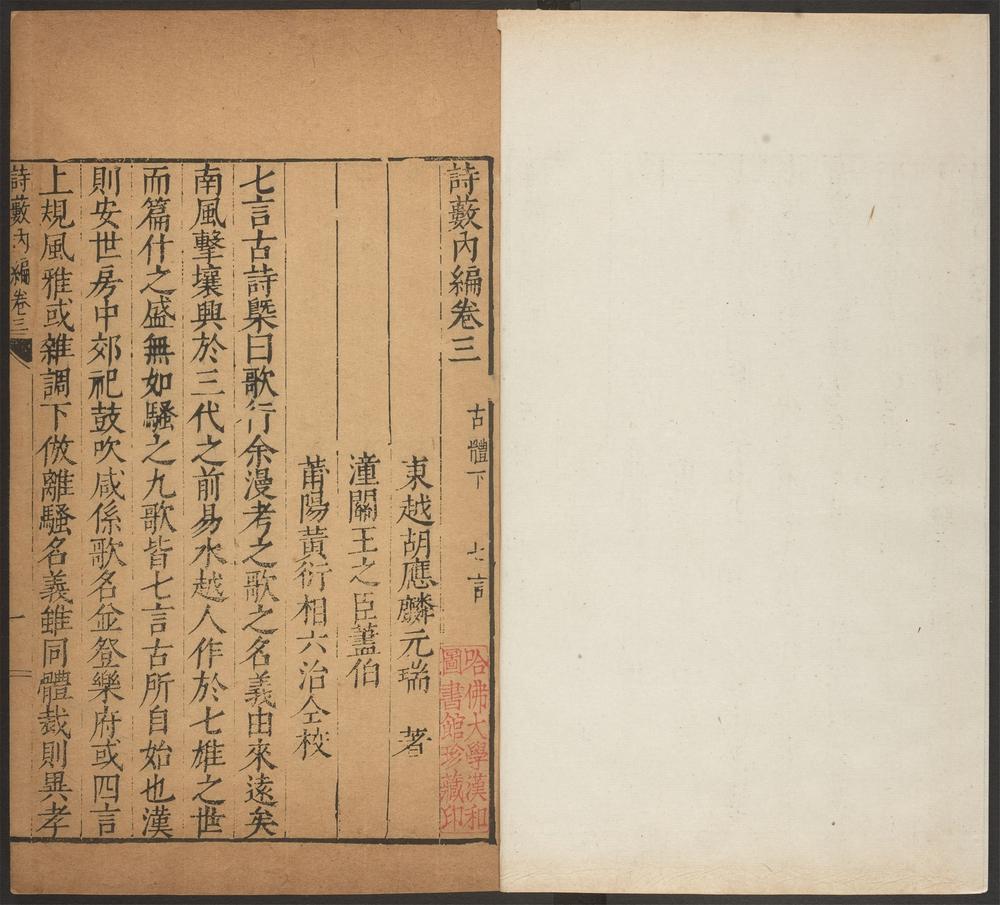 詩藪內編卷三 古體下 七言
東越胡應麟元瑞 著
潼關王之臣藎伯
莆陽黃衍相六治仝校
七言古詩槩曰歌行余漫考之歌之名義由來遠矣
南風擊壤興於三代之前易水越人作於七雄之世
而篇什之盛無如騷之九歌皆七言古所自始也漢
則安世房中郊祀鼓吹咸係歌名並登樂府或四言
上規風雅或雜調下倣離騷名義雖同體裁則異孝
詩藪內編卷三
一
哈佛大學漢和
圖書館珍藏印